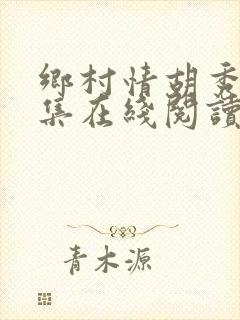 鄉村情胡秀
集在綫閱讀
青木源